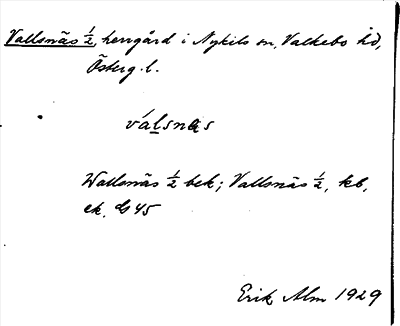 Vallsnäs ½, herrgård i Nykils sn, Valkebo hd,
Österg. l.
válsnäs
Wallsnäs ½ bek; Vallsnäs ½, kb,
ek. G 45
Erik Alm 1929